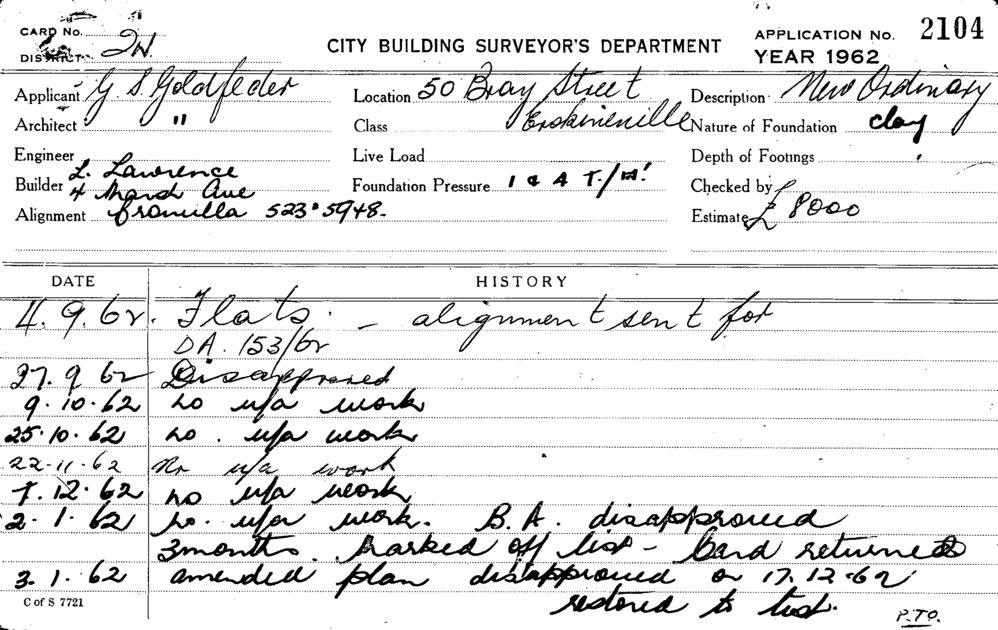 CARD No.
DISTRICT 2W.
CITY BUILDING SURVEYOR'S DEPARTMENT
APPLICATION No. 2104
YEAR 1962
Applicant G. S. Goldfeder
Location 50 Bray Street
Description New Ordinary
Architect "
Class Erskineville
Nature of Foundation clay
Engineer
Live Load
Depth of Footings
Builder L. Lawrence
4 Ave
Foundation Pressure 1 & 4 T./
Checked by
Alignment 523.5948.
Estimate £ 8000
DATE HISTORY
4.9.62. Flats. - alignment sent for
DA. 153/62
27.9 62 Disapproved
9.10.62 no u/a work
25.10.62 no. u/a work
22-11-62 No u/a work
7.12.62 no u/a work
2.1.62 no. u/a work. B.A. disapproved
3 months. marked off list - Card returned
3.1.62 amended plan disapproved on 17.12.62
restored to list.
C of S 7721
P.T.O.